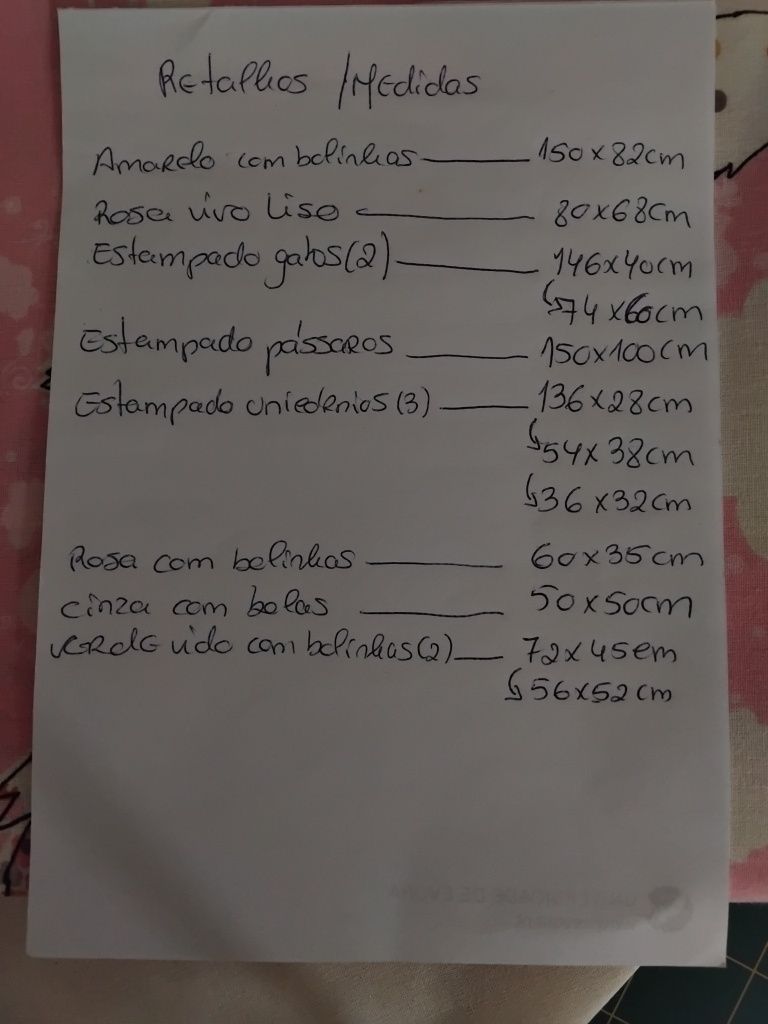 Retalhos / Medidas
Amarelo com bolinhas — 150 x 82cm
Rosa vivo liso — 80x68cm
Estampado gatos (2) — 146x40cm
↳ 74 x 60cm
Estampado pássaros — 150x100cm
Estampado unicórnios (3) — 136 x 28cm
↳ 54 x 38cm
↳ 36 x 32cm
Rosa com bolinhas — 60x35cm
cinza com bolas — 50x50cm
verde com bolinhas (2) — 72x45cm
↳ 56x52cm
UNIVERSIDADE DE ÉVORA